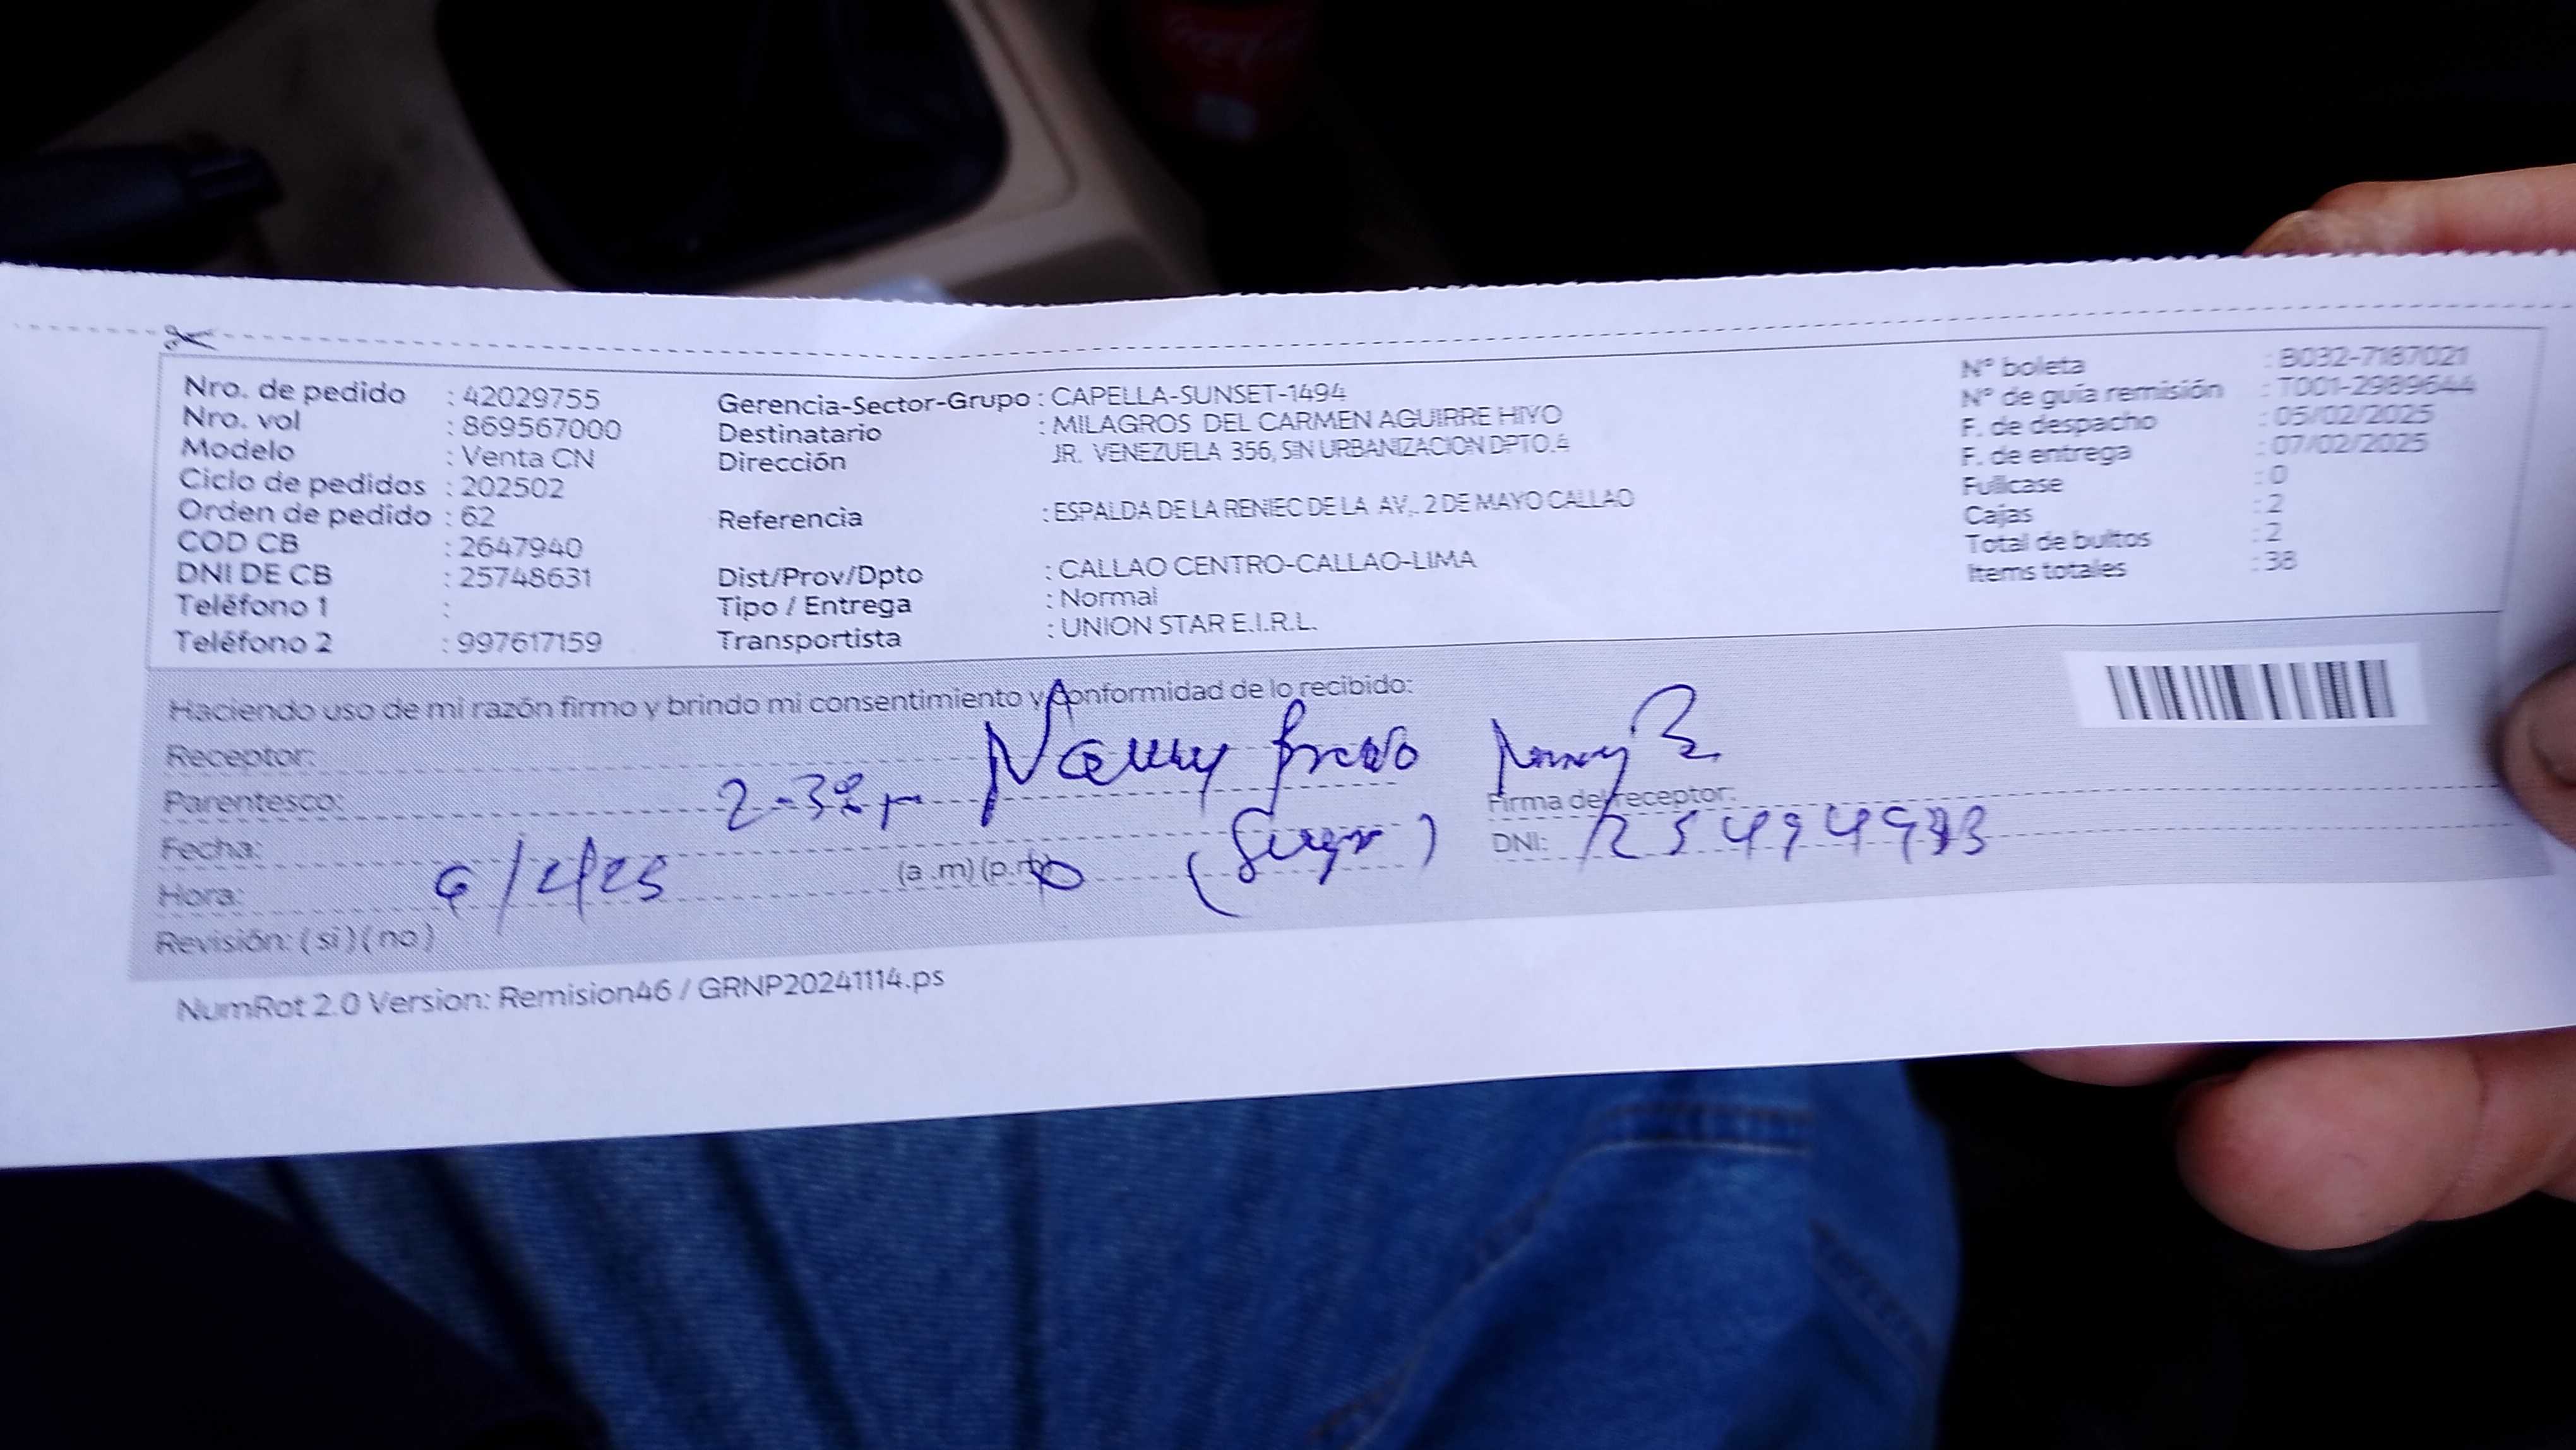 Nro. de pedido : 42029755
Nro. vol : 869567000
Modelo : Venta CN
Ciclo de pedidos : 202502
Orden de pedido : 62
COD CB : 2647940
DNI DE CB : 25748631
Teléfono 1 :
Teléfono 2 : 997617159
Gerencia-Sector-Grupo : CAPELLA-SUNSET-1494
Destinatario : MILAGROS DEL CARMEN AGUIRRE HIYO
Dirección JR. VENEZUELA 356, SIN URBANIZACION DPTO.4
Referencia : ESPALDA DE LA RENIEC DE LA AV,. 2 DE MAYO CALLAO
Dist/Prov/Dpto : CALLAO CENTRO-CALLAO-LIMA
Tipo / Entrega : Normal
Transportista : UNION STAR E.I.R.L.
N° boleta : B032-7187021
N° de guía remisión : T001-2989644
F. de despacho : 05/02/2025
F. de entrega : 07/02/2025
Fullcase : 0
Cajas : 2
Total de bultos : 2
Items totales : 38
Haciendo uso de mi razón firmo y brindo mi consentimiento y conformidad de lo recibido:
Receptor:
Parentesco:
Fecha:
Hora: (a .m) (p.m)
Revisión: ( si ) ( no )
Firma del receptor:
DNI:
NumRot 2.0 Version: Remision46 / GRNP20241114.ps